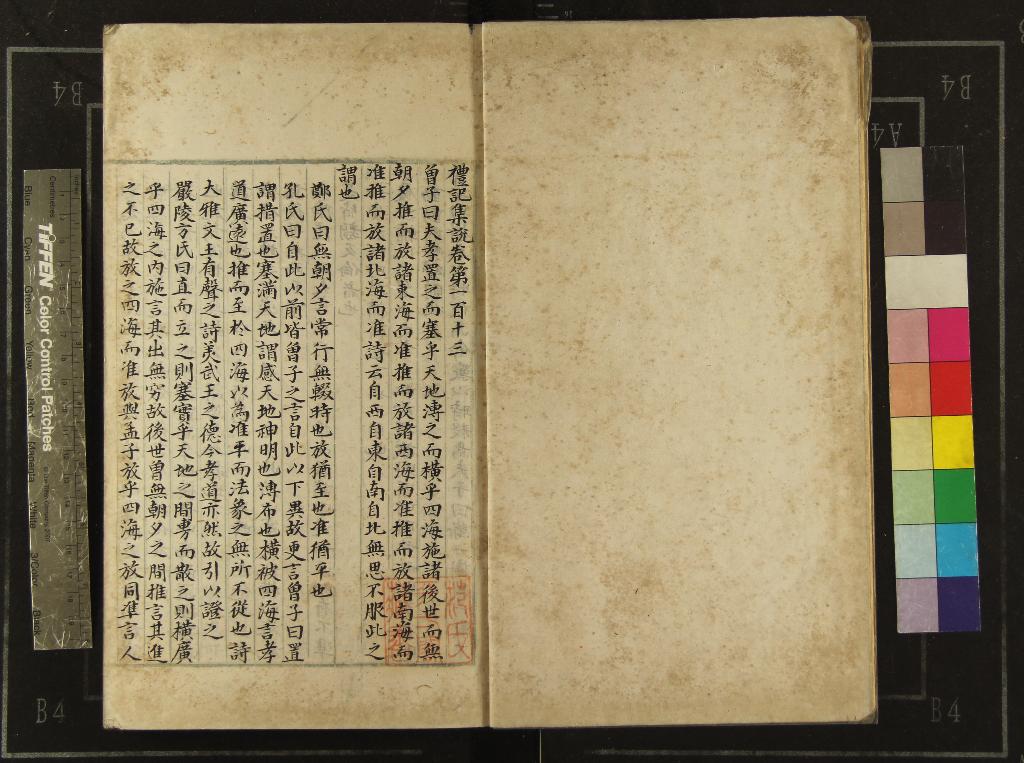 禮記集説卷第一百十三
曾子曰夫孝置之而塞乎天地溥之而橫乎四海施諸後世而無
朝夕推而放諸東海而准推而放諸西海而准推而放諸南海而
准推而放諸北海而准詩云自西自東自南自北無思不服此之
謂也
鄭氏曰無朝夕言常行無輟時也放猶至也准猶平也
孔氏曰自此以前皆曾子之言自此以下異故更言曾子曰置
謂措置也塞滿天地謂感天地神明也溥布也橫被四海言孝
道廣遠也推而至於四海以為准平而法象之無所不從也詩
大雅文王有聲之詩美武王之德今孝道亦然故引以證之
嚴陵方氏曰直而立之則塞實乎天地之間旉而散之則橫廣
乎四海之内施言其出無窮故後世曾無朝夕之間推言其進
之不已故放之四海而准放與孟子放乎四海之放同凖言人
B4
B4
B4
B4
A4
TIFFEN Color Control Patches
Blue
Cyan
Green
Yellow
Red
Magenta
White
3/Color
Black
Centimetres